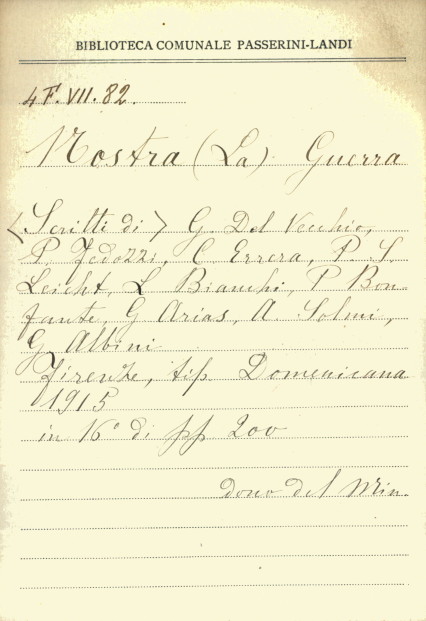 BIBLIOTECA COMUNALE PASSERINI-LANDI
4 F. VII. 82.
Nostra (La) Guerra
<Scritti di> G. Del Vecchio,
P. Fedozzi, C. Errera, P. S.
Leicht, L Bianchi, P Bon-
fante, G Arias, A. Solmi,
G Albini
Firenze, tip. Domenicana
1915
in 16° di pp 200
dono del Min.